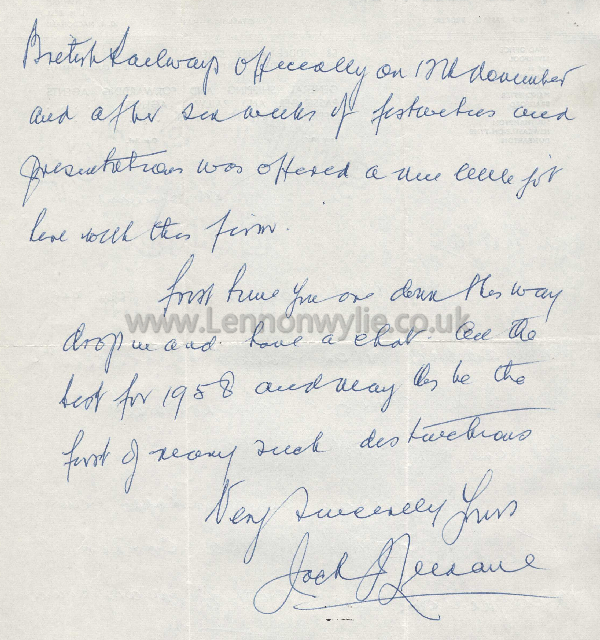 British Railways officially on 12th November
and after six weeks of festivities and
presentations was offered a nice little job
here with this firm.
first time you are down this way
www.Lennonwylie.co.uk
drop in and have a chat. All the
best for 1958 and may this be the
first of many such distinctions
Very sincerely Yours
Jack